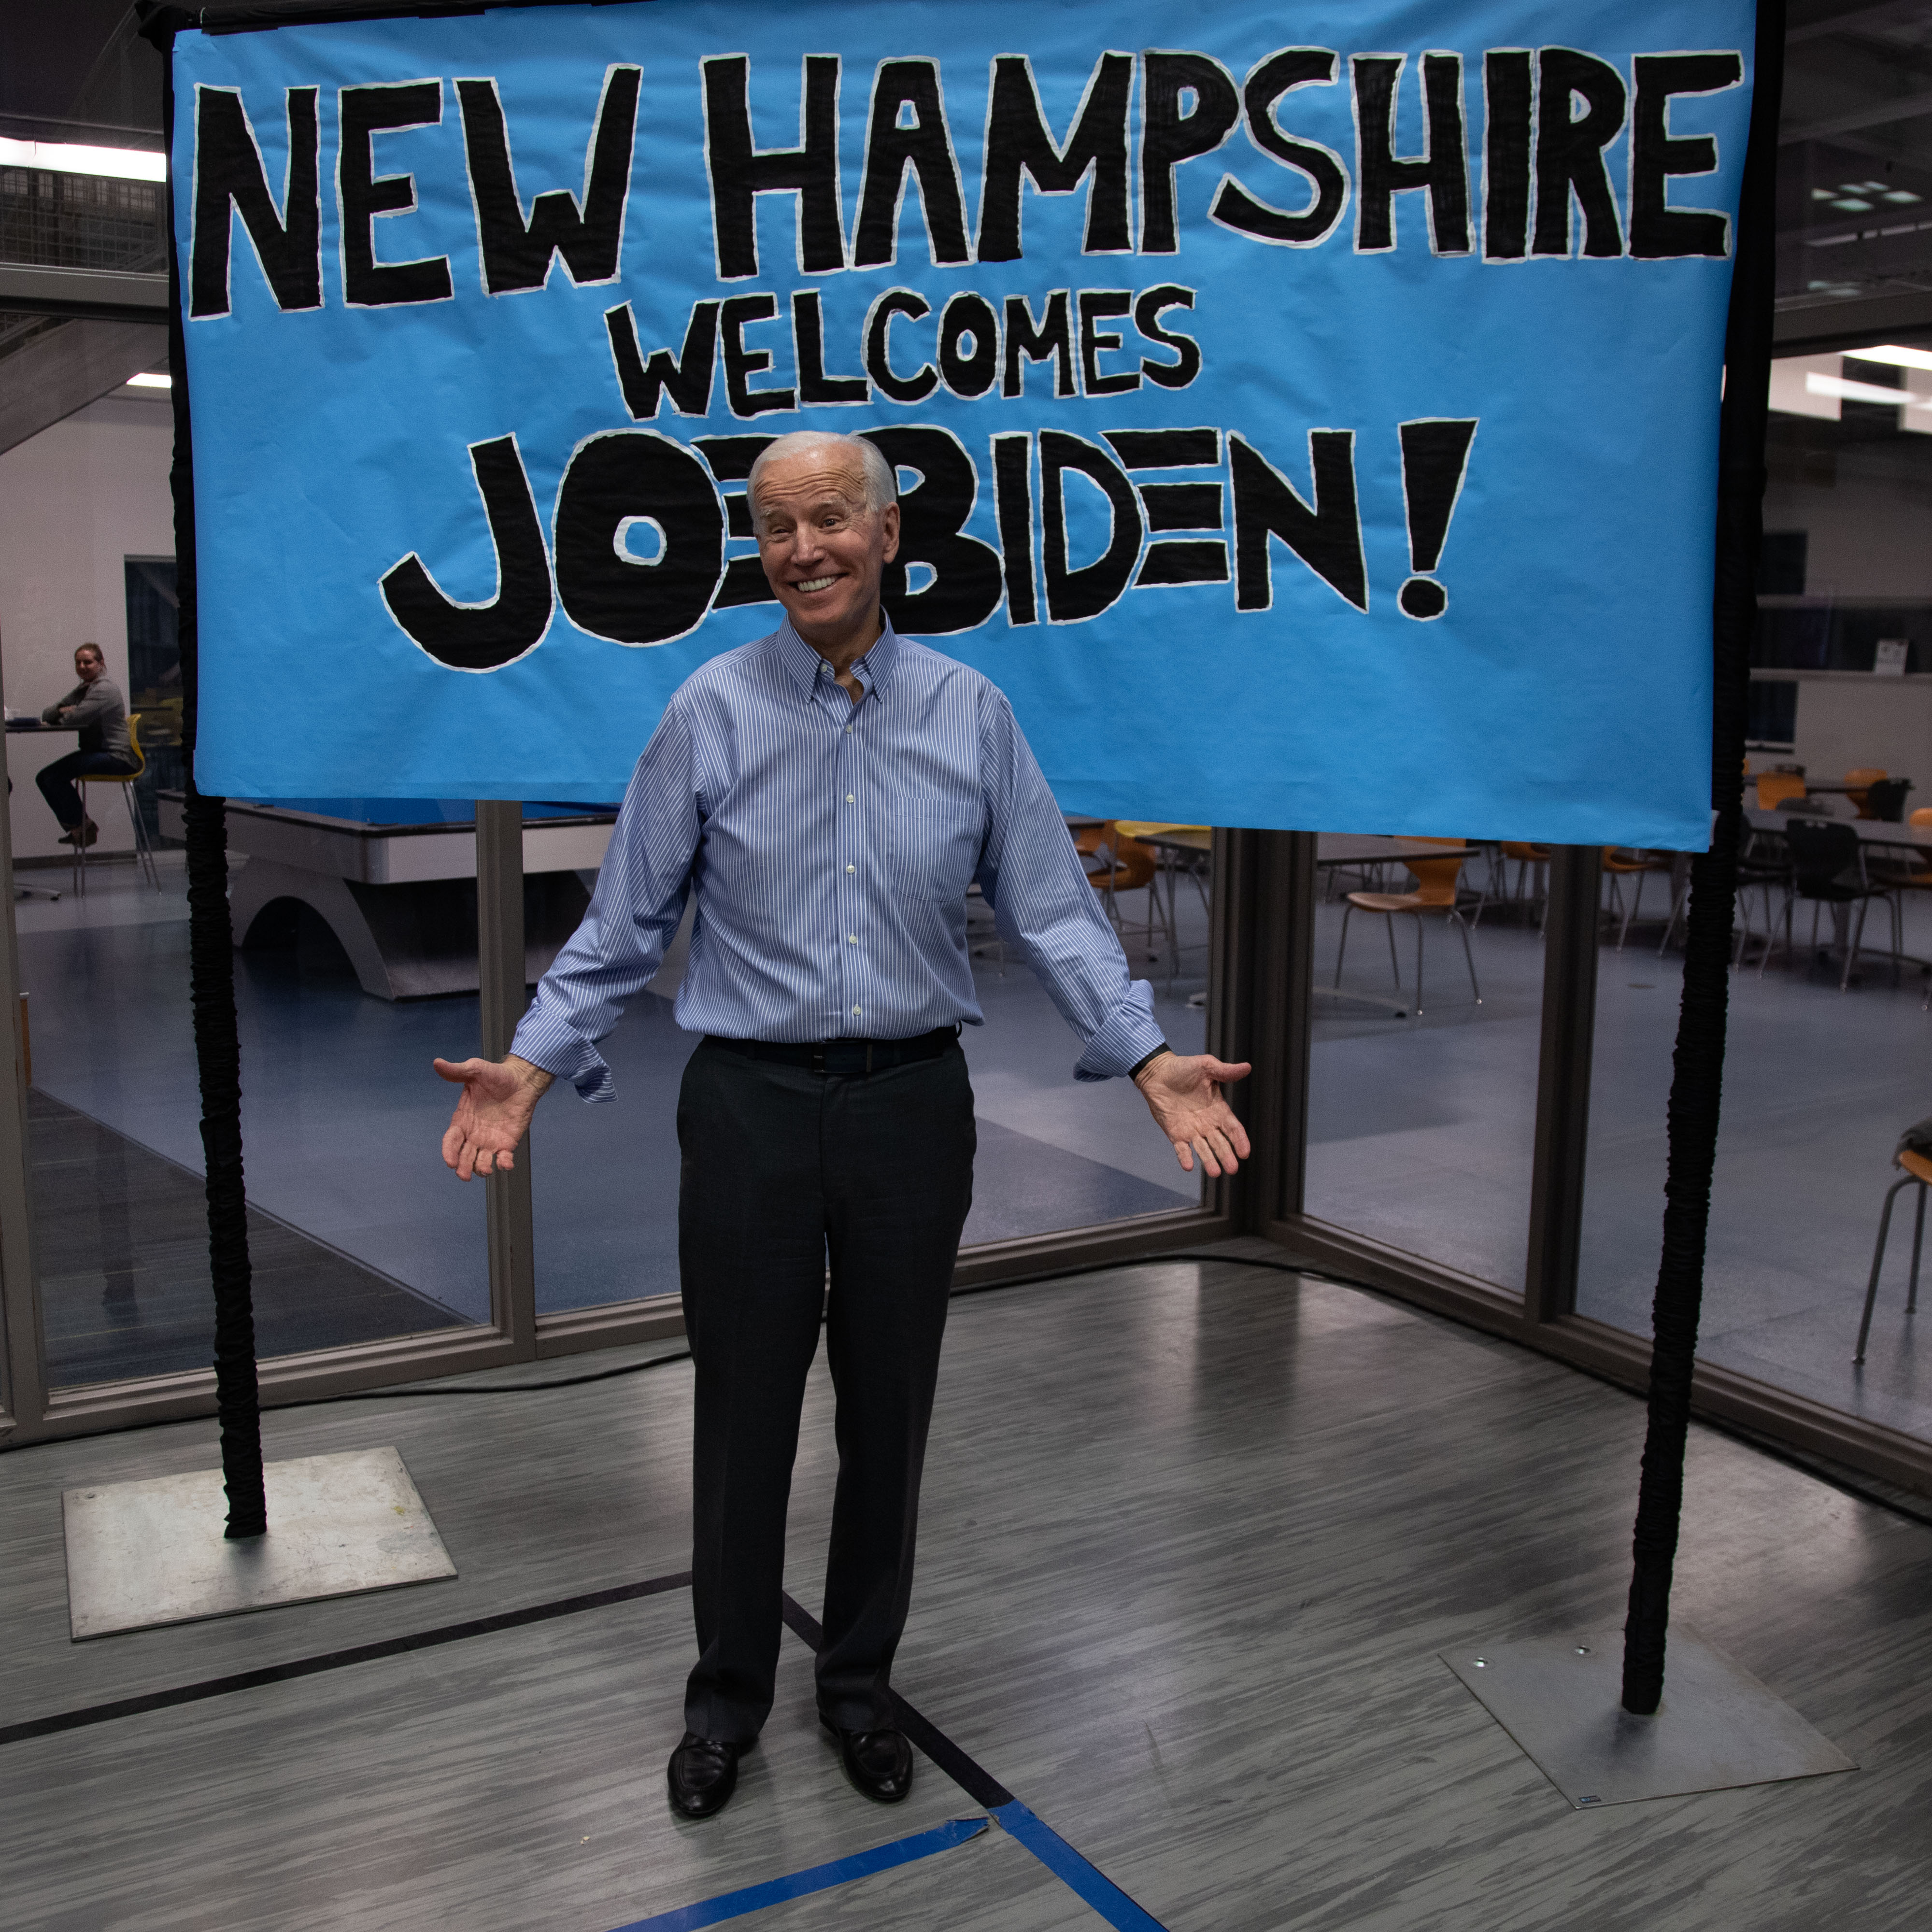 NEW HAMPSHIRE
WELCOMES
JOE BIDEN!